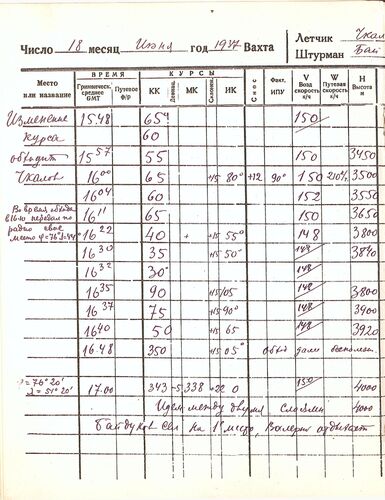 Число 18 месяц Июня год 1937 Вахта
Летчик Чкалов
Штурман Бай
Место или название
ВРЕМЯ
Гринвичск. среднее GMT
Путевое ф/р
КУРСЫ
КК
Девиац.
МК
Склонен.
ИК
Снос
Факт. ИПУ
V Возд скорость к/ч
W Путевая скорость к/ч
H Высота м
Изменение 15.48 65° 150
курса 60
обходит 15 57 55 150 3450
Чкалов 16 00 65 +15 80° +12 90° 150 210% 3500
16 04 60 152 3550
Во время обхода 16 11 65 150 3650
в 16ч передал по
радио свое 16 22 40 + +15 55° 148 3800
место φ=76°
16 30 35 +15 50° 148 3840
16 32 30°
16 35 90 +15 105 148 3800
16 37 75 +15 90° 148 3900
16 40 50 +15 65 148 3920
16.48 350 +15 05°
φ=76° 20' 17.00 343 -5 338 +22 0 150 4000
λ=51° 20'
Идем между двумя слоями 4000
Байдуков сел на 1е место, Валерий отдыхает